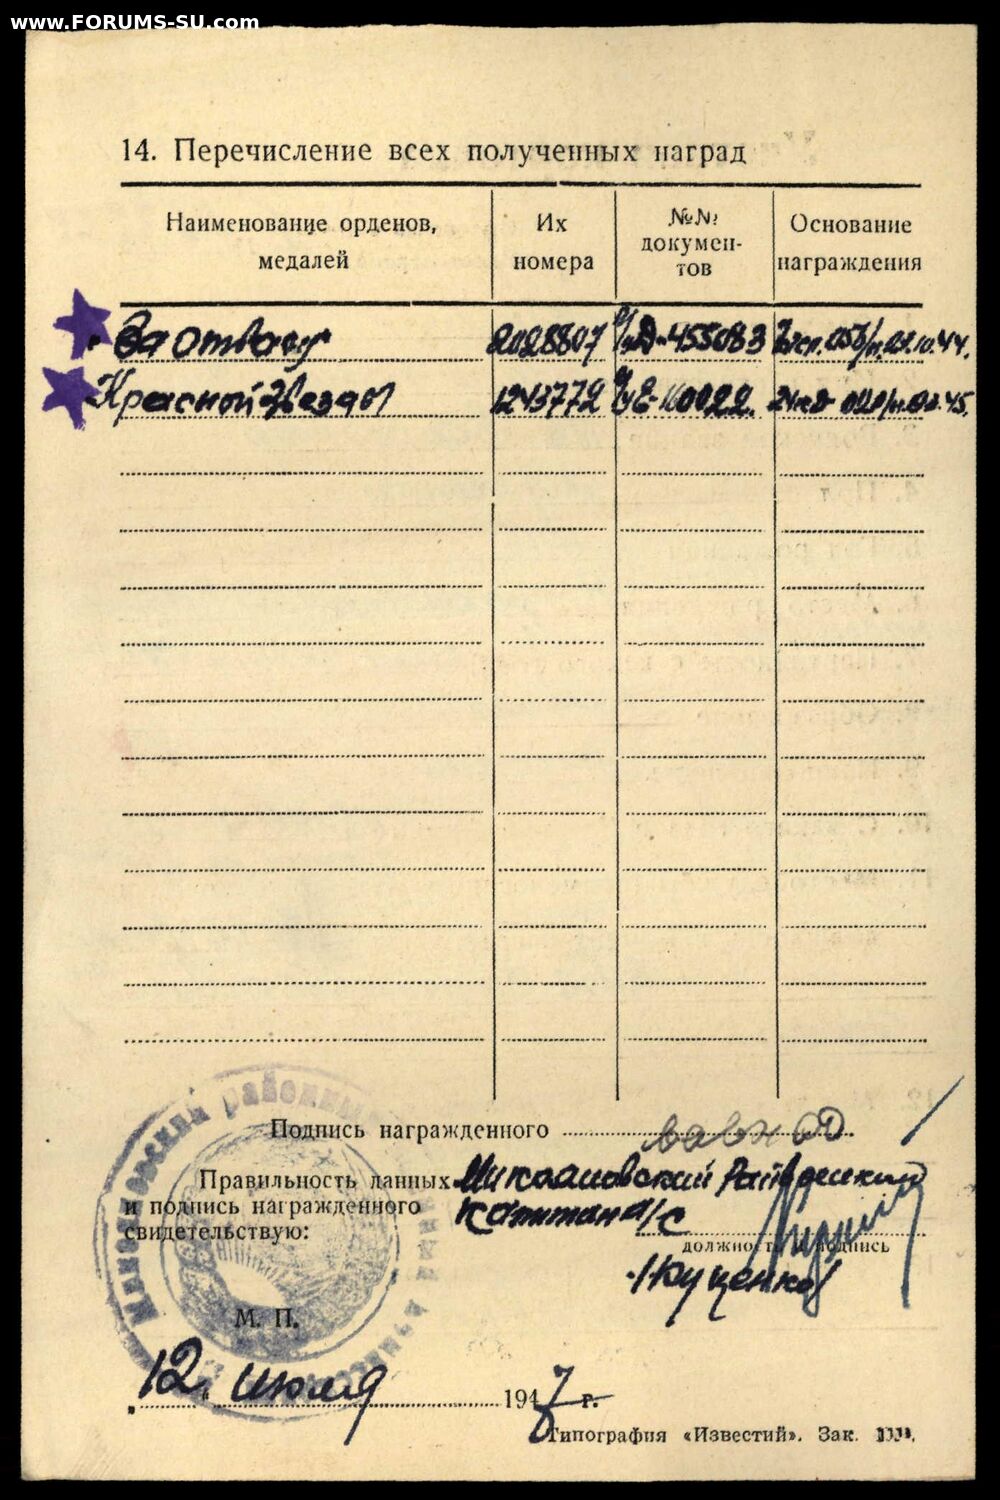 www.FORUMS-SU.com
14. Перечисление всех полученных наград
Наименование орденов, медалей
Их номера
№№ документов
Основание награждения
За отвагу 2028807 455083
Красной Звезды 1243772
Подпись награженного
Правильность данных
и подпись награжденного
свидетельствую:
Капитан а/с
должность и подпись
/Куценко/
М. П.
"12" июля 1947 г.
Типография «Известий». Зак.